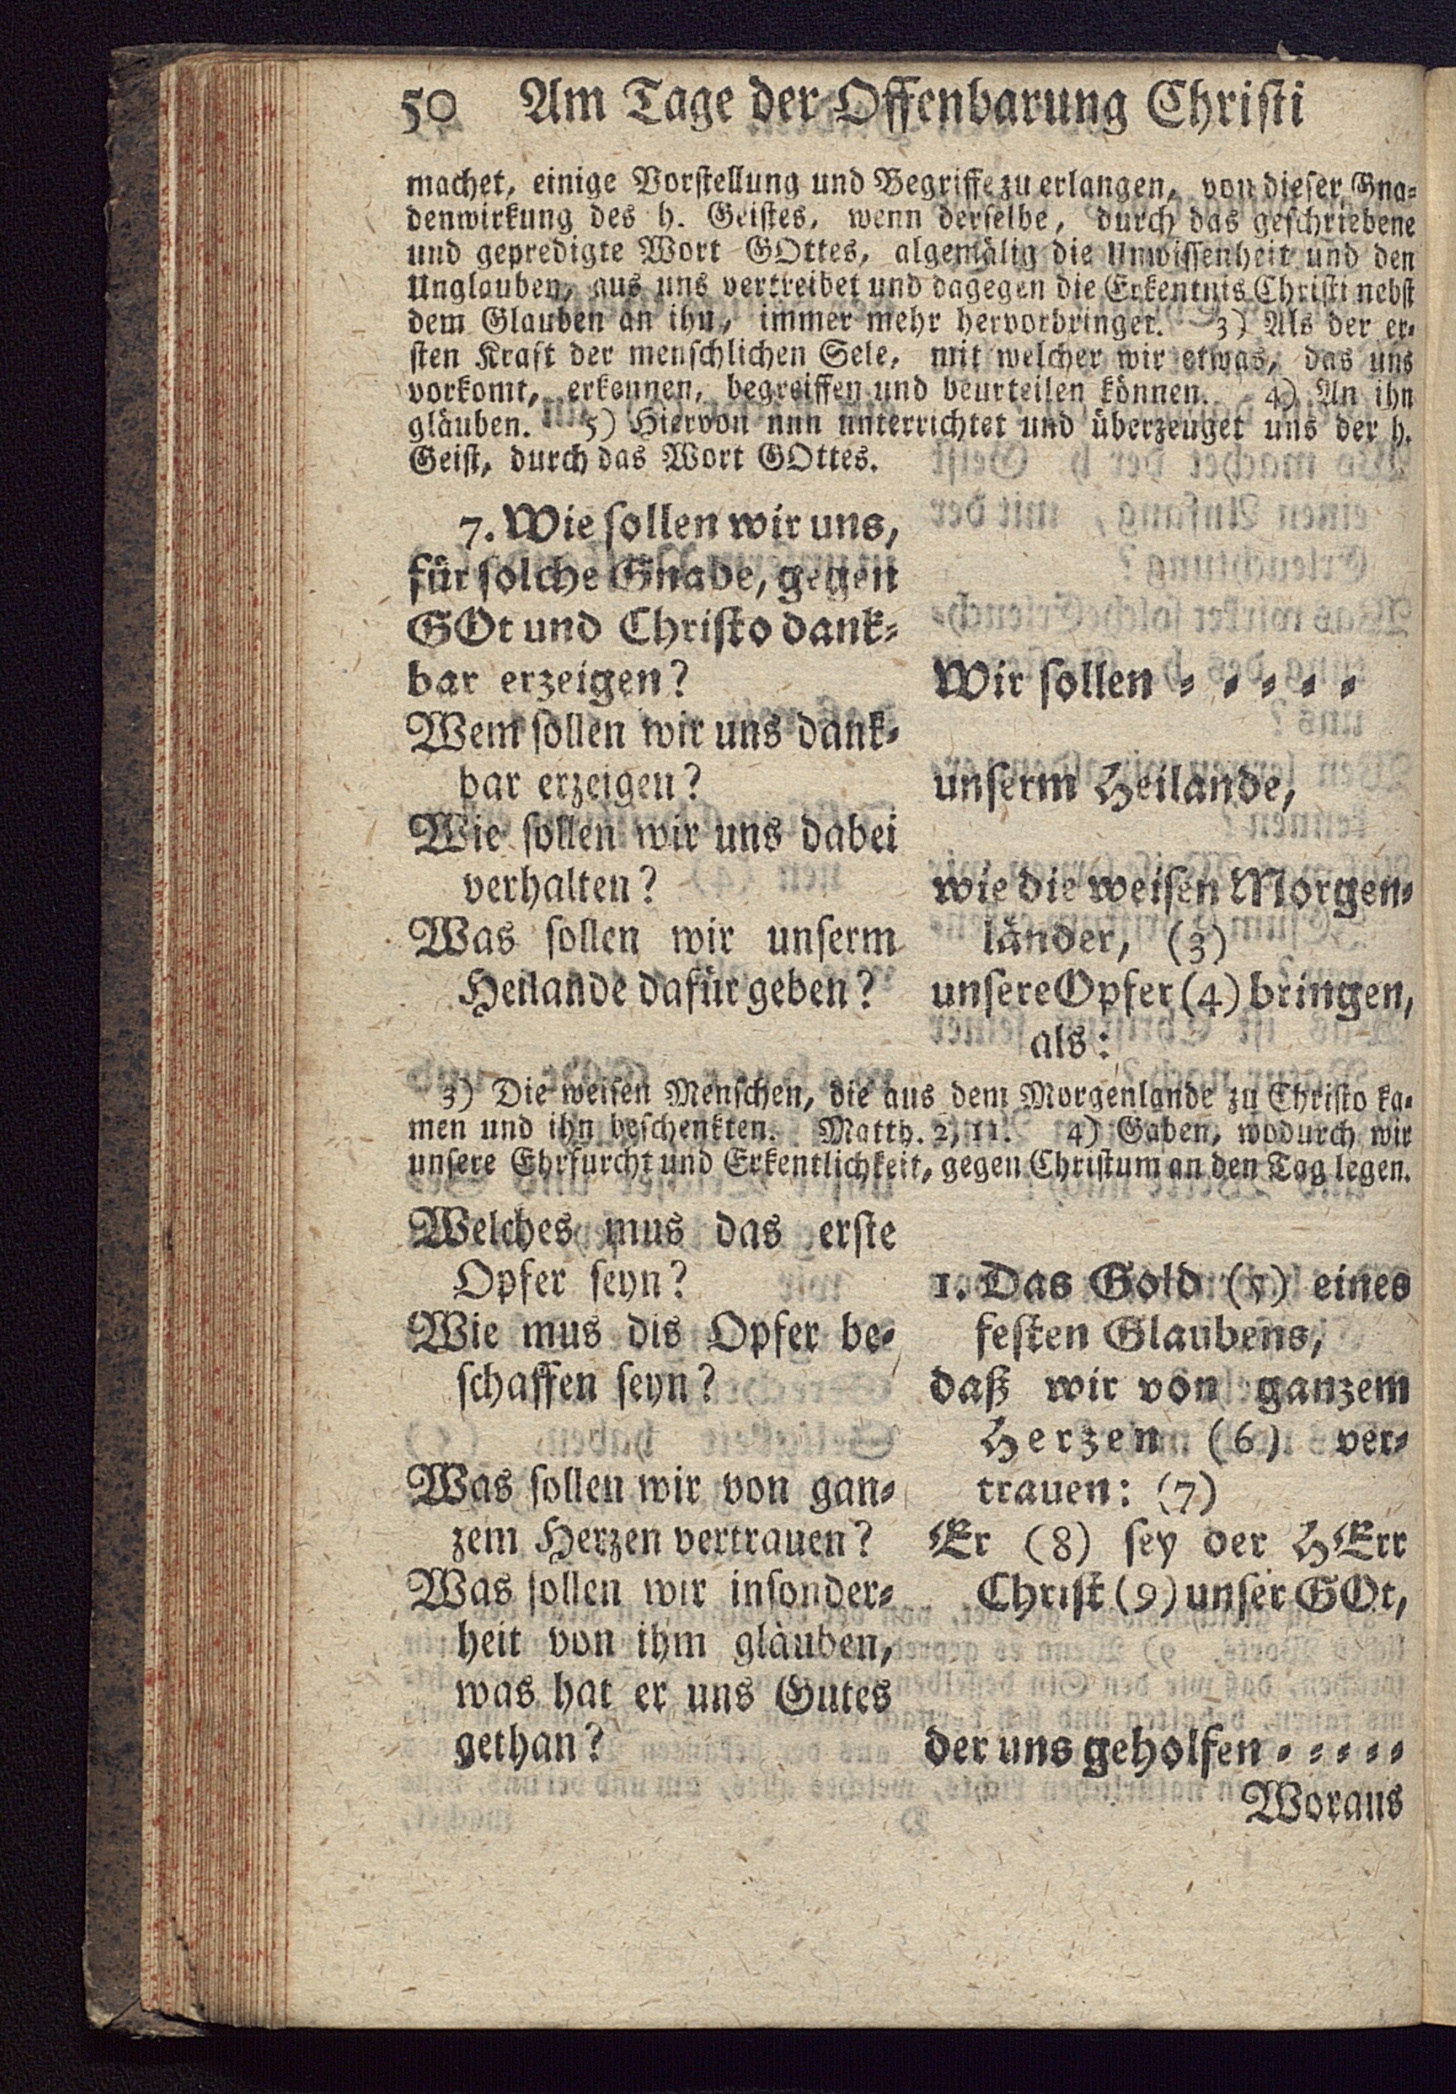 50 Am Tage der Offenbarung Christi
machet, einige Vorstellung und Begriffe zu erlangen, von dieser Gna-
denwirkung des h. Geistes, wenn derselbe, durch das geschriebene
und gepredigte Wort GOttes, algemälig die Unwissenheit und den
Unglauben, aus uns vertreibet und dagegen die Erkentnis Christi nebst
dem Glauben an ihn, immer mehr hervorbringet. 3) Als der er-
sten Kraft der menschlichen Sele, mit welcher wir etwas, das uns
vorkomt, erkennen, begreiffen und beurteilen können. 4) An ihn
gläuben. 5) Hiervon nun unterrichtet und überzeuget uns der h.
Geist, durch das Wort GOttes.
7. Wie sollen wir uns,
für solche Gnade, gegen
GOt und Christo dank-
bar erzeigen?
Wem sollen wir uns dank-
bar erzeigen?
Wie sollen wir uns dabei
verhalten?
Was sollen wir unserm
Heilande dafür geben?
Wir sollen - - - - -
unserm Heilande,
wie die weisen Morgen-
länder, (3)
unsere Opfer (4) bringen,
als:
3) Die weisen Menschen, die aus dem Morgenlande zu Christo ka-
men und ihn beschenkten. Matth. 2, 11. 4) Gaben, wodurch wir
unsere Ehrfurcht und Erkentlichkeit, gegen Christum an den Tag legen.
Welches mus das erste
Opfer seyn?
Wie mus dis Opfer be-
schaffen seyn?
Was sollen wir von gan-
zem Herzen vertrauen?
Was sollen wir insonder-
heit von ihm gläuben,
was hat er uns Gutes
gethan?
1. Das Gold (5) eines
festen Glaubens,
daß wir von ganzem
Herzen (6) ver-
trauen: (7)
Er (8) sey der HErr
Christ (9) unser GOt,
der uns geholfen - - - - -
Woraus